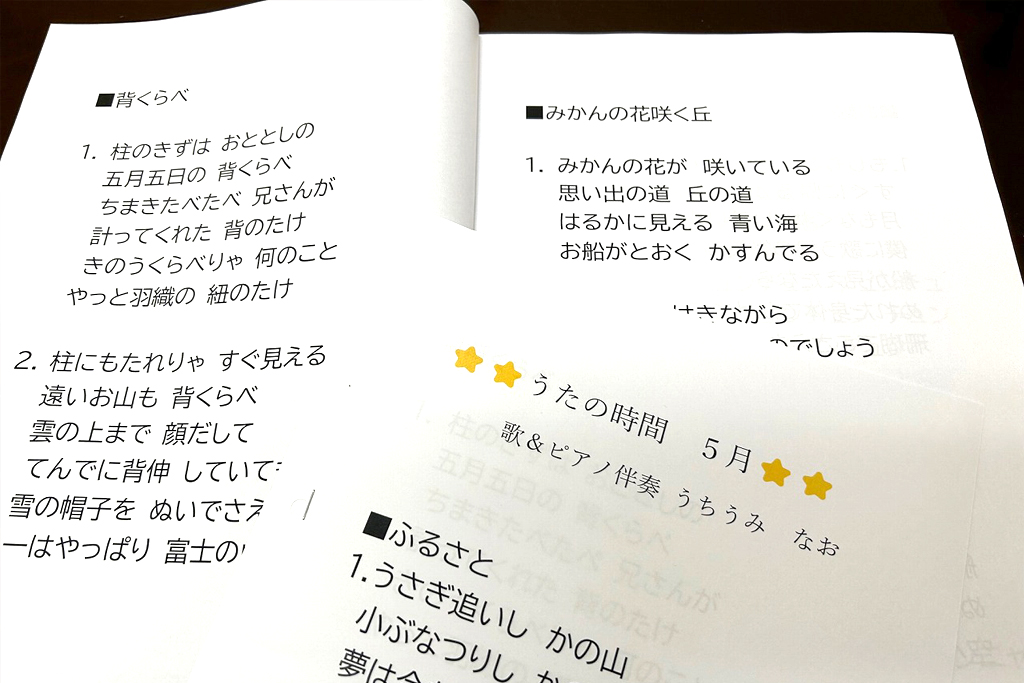 ■背くらべ
1. 柱のきずは おととしの
五月五日の 背くらべ
ちまきたべたべ 兄さんが
計ってくれた 背のたけ
きのうくらべりゃ 何のこと
やっと羽織の 紐のたけ
2. 柱にもたれりゃ すぐ見える
遠いお山も 背くらべ
雲の上まで 顔だして
てんでに背伸 していて
雪の帽子を ぬいでさえ
一はやっぱり 富士の
■みかんの花咲く丘
1. みかんの花が 咲いている
思い出の道 丘の道
はるかに見える 青い海
お船がとおく かすんでる
はきながら
のでしょう
うたの時間 5月
歌&ピアノ伴奏 うちうみ なお
■ふるさと
1.うさぎ追いし かの山
小ぶなつりし か
夢は今